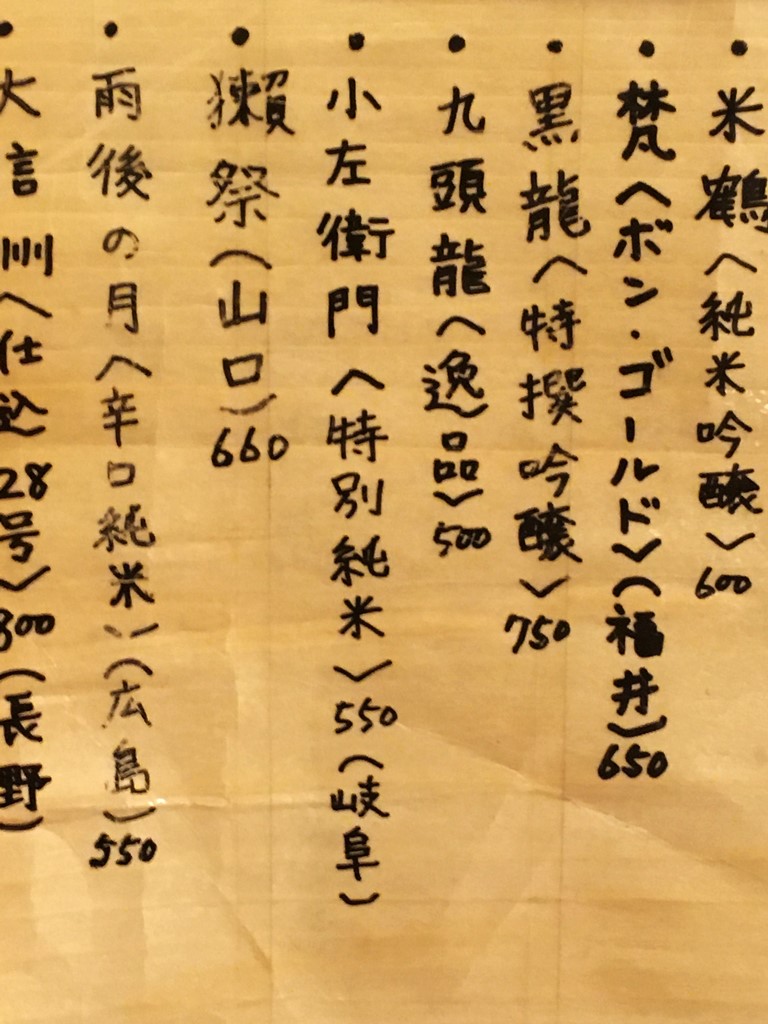 ・米鶴〈純米吟醸〉600
・梵〈ボン・ゴールド〉(福井)650
・黒龍〈特撰吟醸〉750
・九頭龍〈逸品〉500
・小左衛門〈特別純米〉550(岐阜)
・獺祭(山口)660
・雨後の月〈辛口純米〉(広島)550
・大信州〈仕込28号〉800(長野)